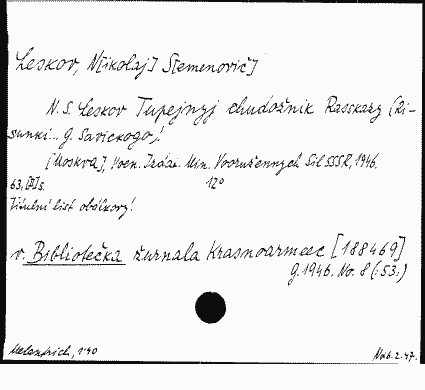 Leskov, N[ikolaj] S[emenovič]
N. S. Leskov Tupejnyj chudožnik Rasskazy (Ri-
sunki... G. Savickogo)!
[Moskva], Voen. Izdat. Min. Vooružennych Sil SSSR, 1946.
63, [1] s. 12°
Titulní list obálkový!
v. Bibliotečka žurnala Krasnoarmeec [188469]
g. 1946. No. 8 (:53:)
Melandrich, 1'40